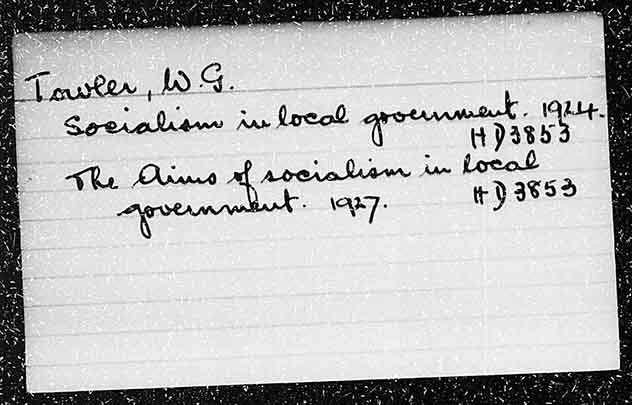 Towler, W.G.
Socialism in local government. 1924.
HD3853
The Aims of socialism in local
government. 1927.
HD3853